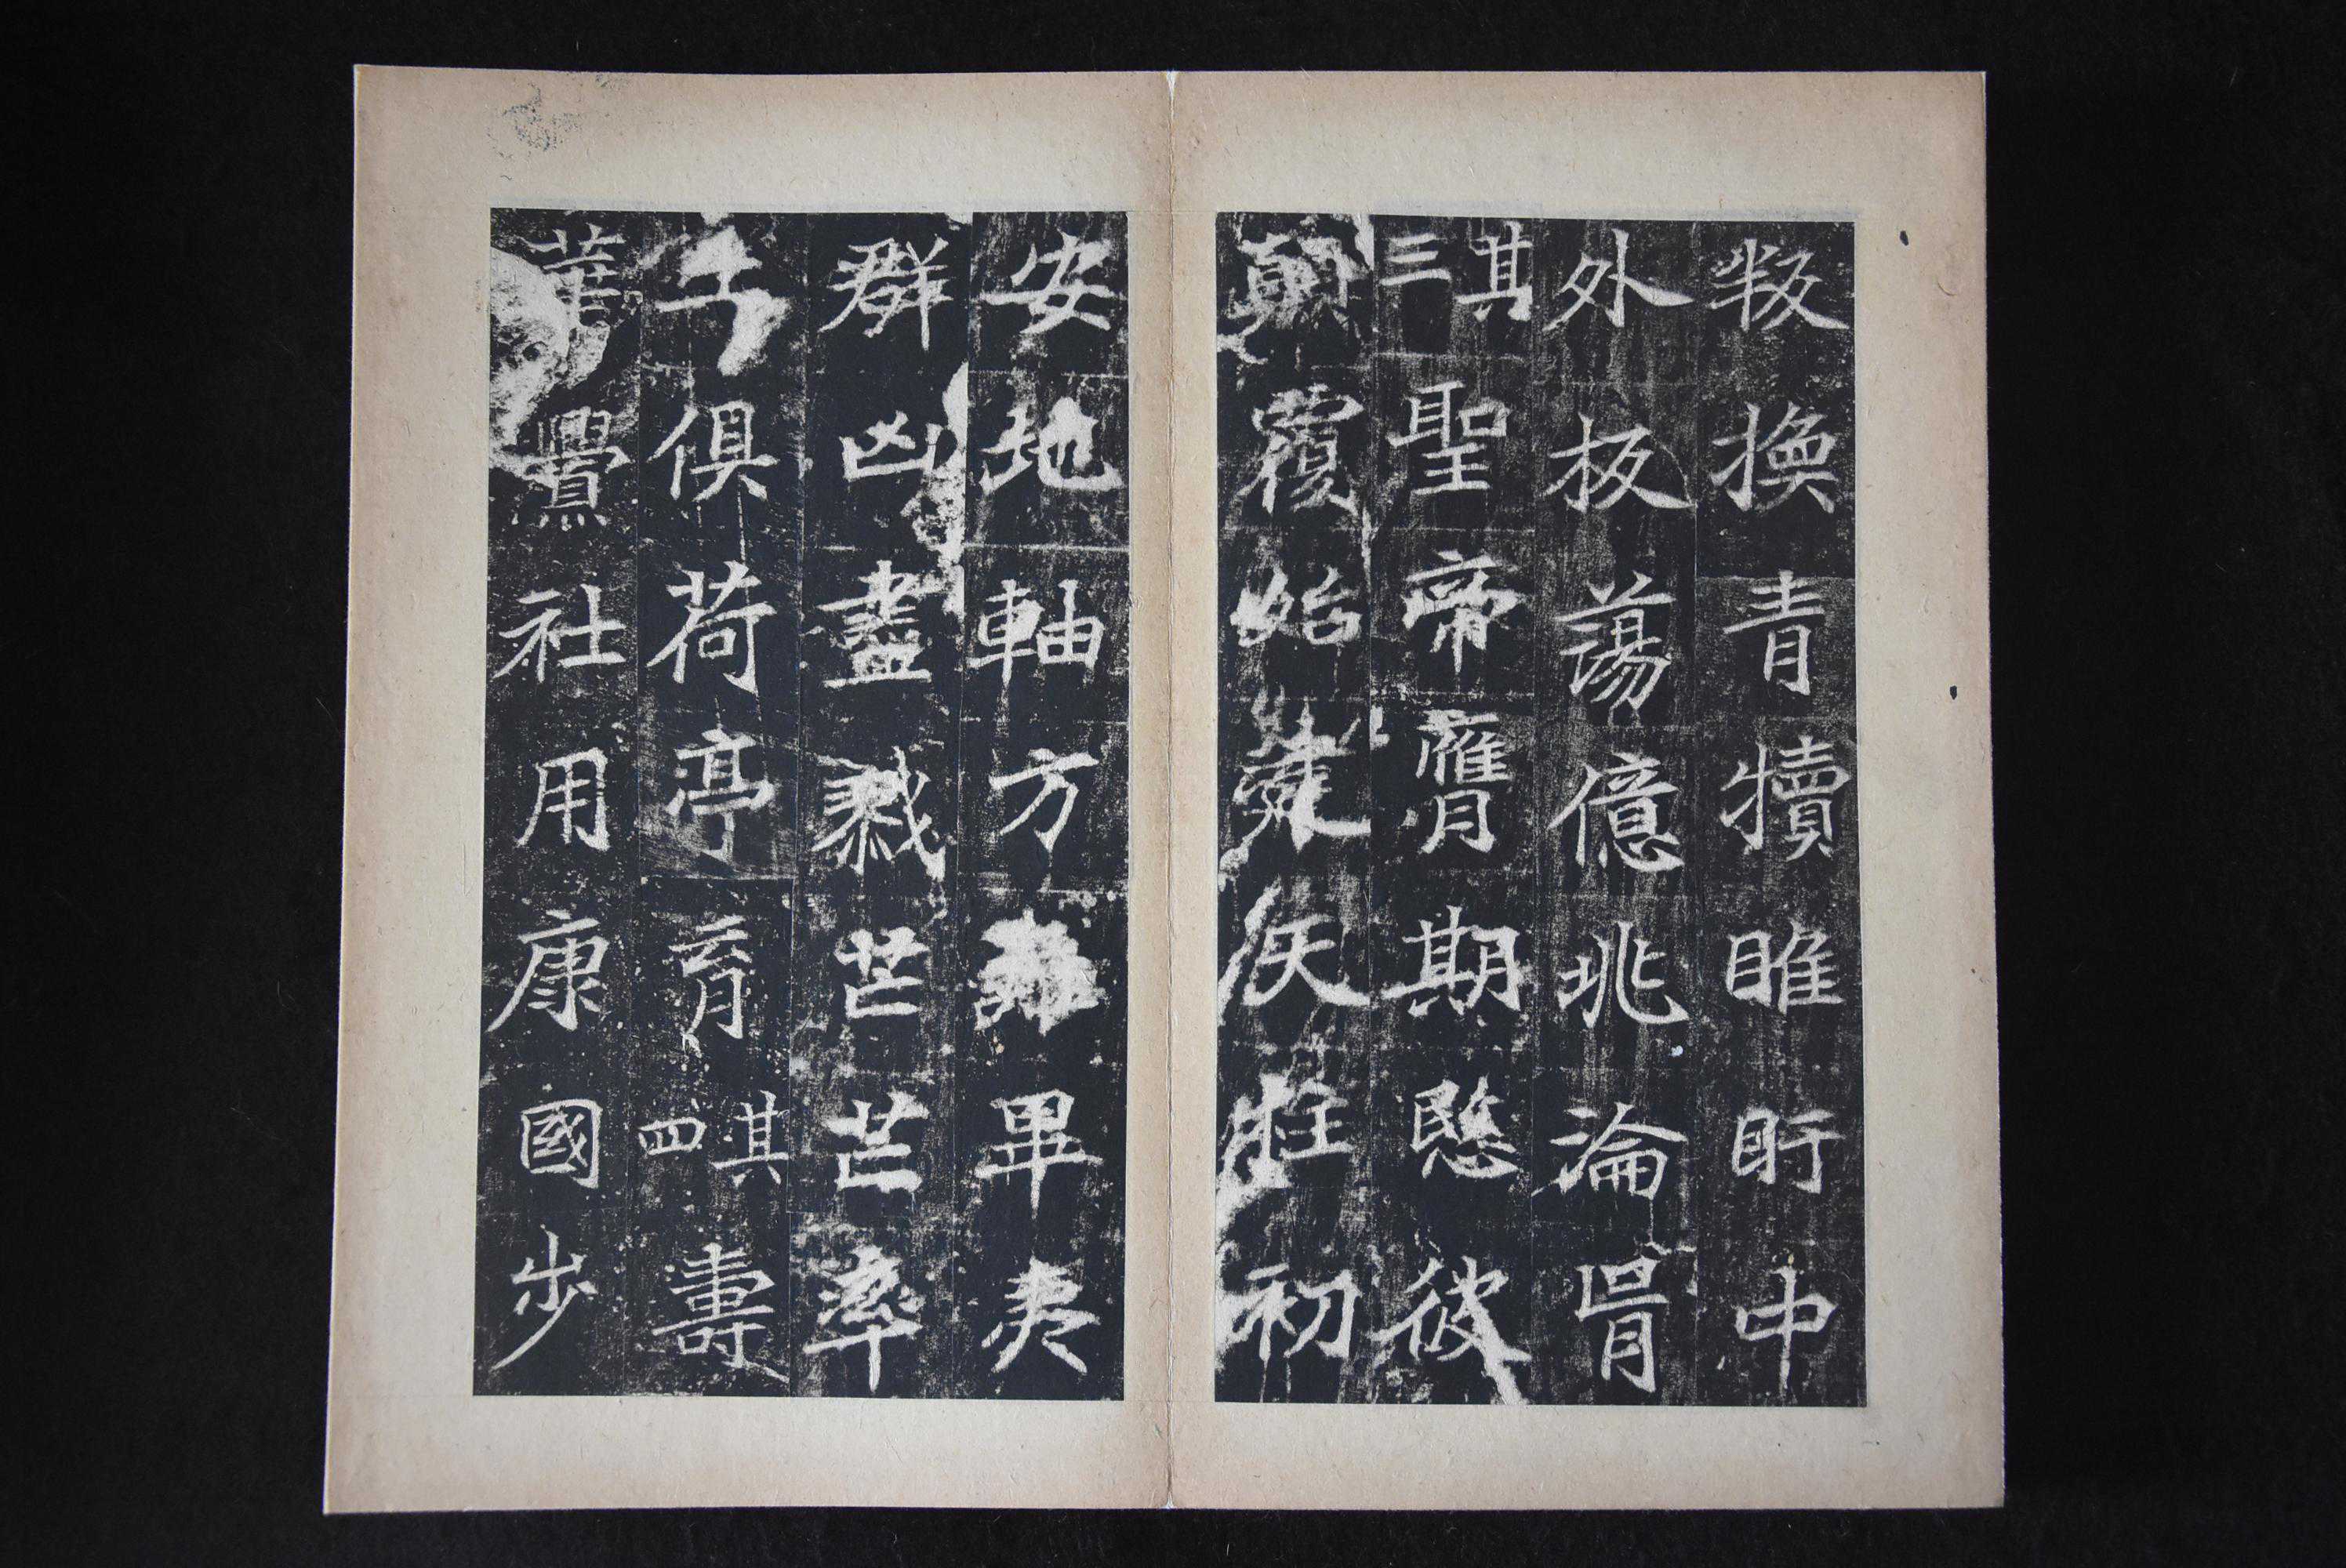 叛換青犢睢盱中
外板蕩億兆淪胥
其三聖帝膺期愍彼
顛覆始建天柱初
安地軸方難畢夷
群凶盡戮芒芒率
土俱荷亭育其四壽
華釁社用康國步